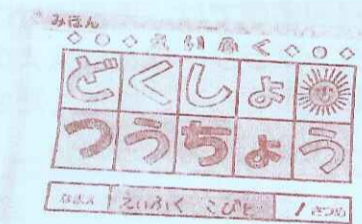 みほん
◇○◇えいふく◇○◇
どくしょ
つうちょう
なまえ えいふく こびと 1さつめ